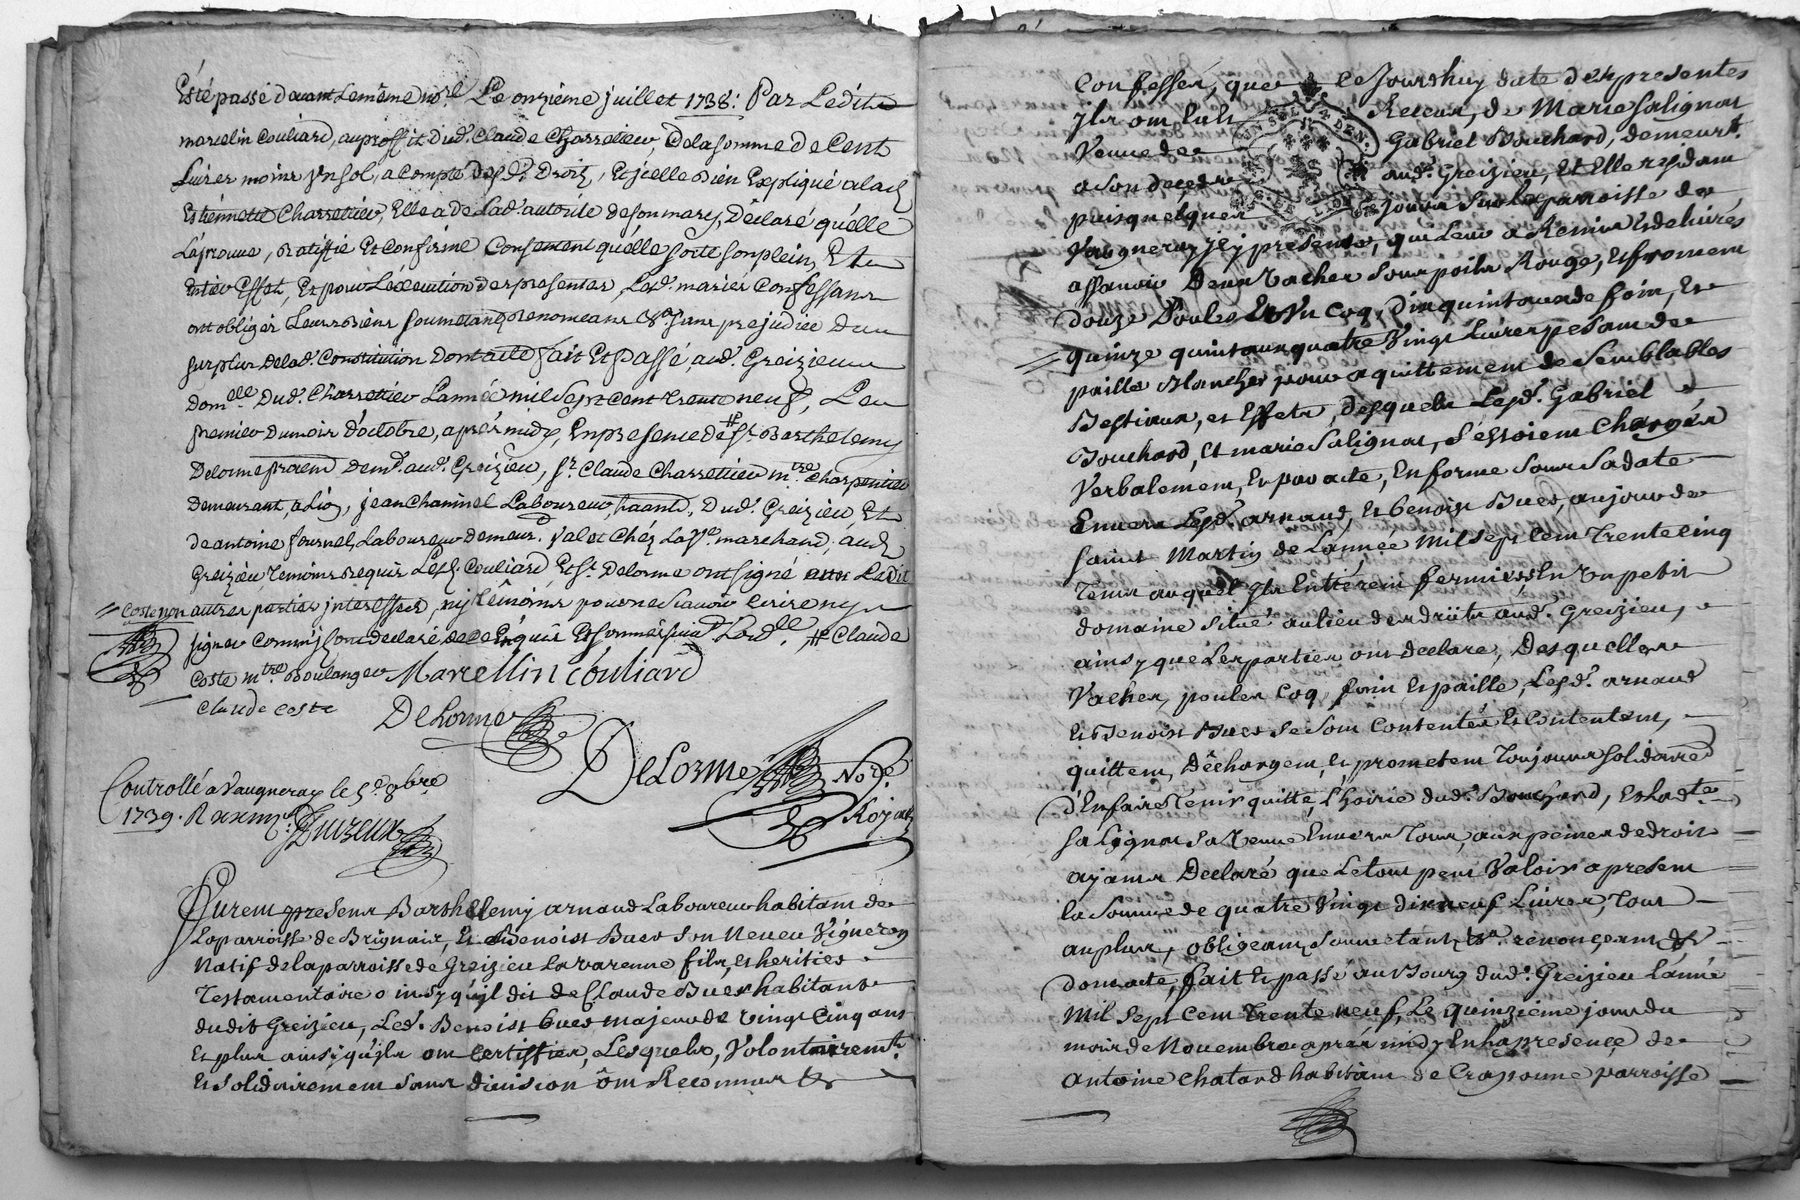 Esté passé davant Lemême no.re Le onzième juillet 1738: Par Ledit
marcelin Couliard, auproffit Dud. Claude Charretier, Delasomme de Cent
Livres moins Un sol, a Compte Desd. Droits, Et icelle Bien Expliqué alad.
Estiennette Charretier, Elle a de Lad. autorité deson mary, Déclaré qu'élle
L'aprouve, Ratiffie Et Confirme Consement qu'élle sorte son plein, Et
Entier Effet, Et pour L'éxécution des presentes, Lesd. mariés Confessans
ont obligés Leurs Biens soumetans Renonceans &a sans prejudice du
surplus Delad. Constitution Dont acte fait Et Passé, aud. Greizieu
Dom.elle Dud. Charrettier L'anné mil Sept Cent trente neuf, Le
premier Dumois d'octobre, aprés midy, En presence de # S.r Barthelemy
Delorme praend Dem.t aud. Greizieu, S.r Claude Charrettier m.tre Charpentier
Demeurant, a Lion, jean Chaminel Laboureur, Dud. Greizieu, Et
de antoine fournel, Laboureur demeur. valet Chéz La V.e marchand, aud.
Greizieu, Temoins Requis Lesd. Couliard Et S.r Delorme ont signé Ladit
= Coste non autres parties interessées, ny témoins pour ne Scavoir écrire ny
signer Comm'ils ont declaré de ce Enquis Et sommés suiv.t Lord.ce, # Claude
Coste m.tre Boulanger Marcellin Couliard
Claude Coste
Delorme
Delorme No.re
Royal
Controllé a Vaugneray le 5.e 8bre
1739. R
Furent presens Barthelemy arnaud Laboureur habitant de
Laparroisse de Brignais, Et Benoist Buer son Neveu Vigneron
Natif delaparroisse de Greizieu Lavarenne fils, et heritier
Testamentaire ainsy qu'il dit de Claude Buer habitant
dudit Greizieu, Led. Benoist Buer majeur de vingt Cinq ans
Et plus ainsy qu'ils ont Certiffier, Lesquels, Volontairem.t
Et solidairement sans division ont Reconnus &
Confesser, que ce Jourdhuy date des presentes
Ils ont Eu Receus, de Marie Salignat
Veuve de Gabriel Bouchard, demeur.t
a son decede aud. Greizieu, Et Elle residant
puis quelques Jours sur Laparroisse de
Vaugneray Icy presente, qui Leur a Remis Et delivrés
assavoir Deux Vaches sous poils Rouge, Et froment
douze Poules Et Un Coq, Dix quintaux de foin, Et
= quinze quintaux quatre Vingt Livres pesant de
paille Blanche pour aquittement de Semblables
Bestiaux, et Effets, desquels Lesd. Gabriel
Bouchard, Et marie Salignat, s'éstoient Chargés
Verbalement, Et par acte, En forme Sous Sadate
Envers Lesd. arnaud, Et benoist Buer, au jour de
saint Martin de L'année Mil sept Cent Trente Cinq
Tems auquel Ils Entrerent fermiers En Un petit
domaine situé au lieu des droits aud. Greizieu,
ainsy que Les parties ont declare, Desquelles
Vaches, poules Coq, foin Et paille, Lesd. arnaud
Et Benoist Buer se sont Contentés Et Contentent,
quittent, Déchargent, et promettent Toujours solidaire
d'En faire Tenir quitte, L'hoirie dud. Bouchard, Et Lad.te
Salignat sa Veuve Envers Tous, aux peines de droit
ayants Declaré que Le tout peut Valoir apresent
la somme de quatre Vingt dix neuf Livres, Tout
au plus, obligeant, soumettant &a. renonçeant &
dont acte, fait Et passé au Bourg dud. Greizieu L'anné
Mil Sept Cent Trente neuf, Le quinzieme jour du
mois de Novembre aprés midy En la presence de
antoine Chatard habitant de Craponne parroisse